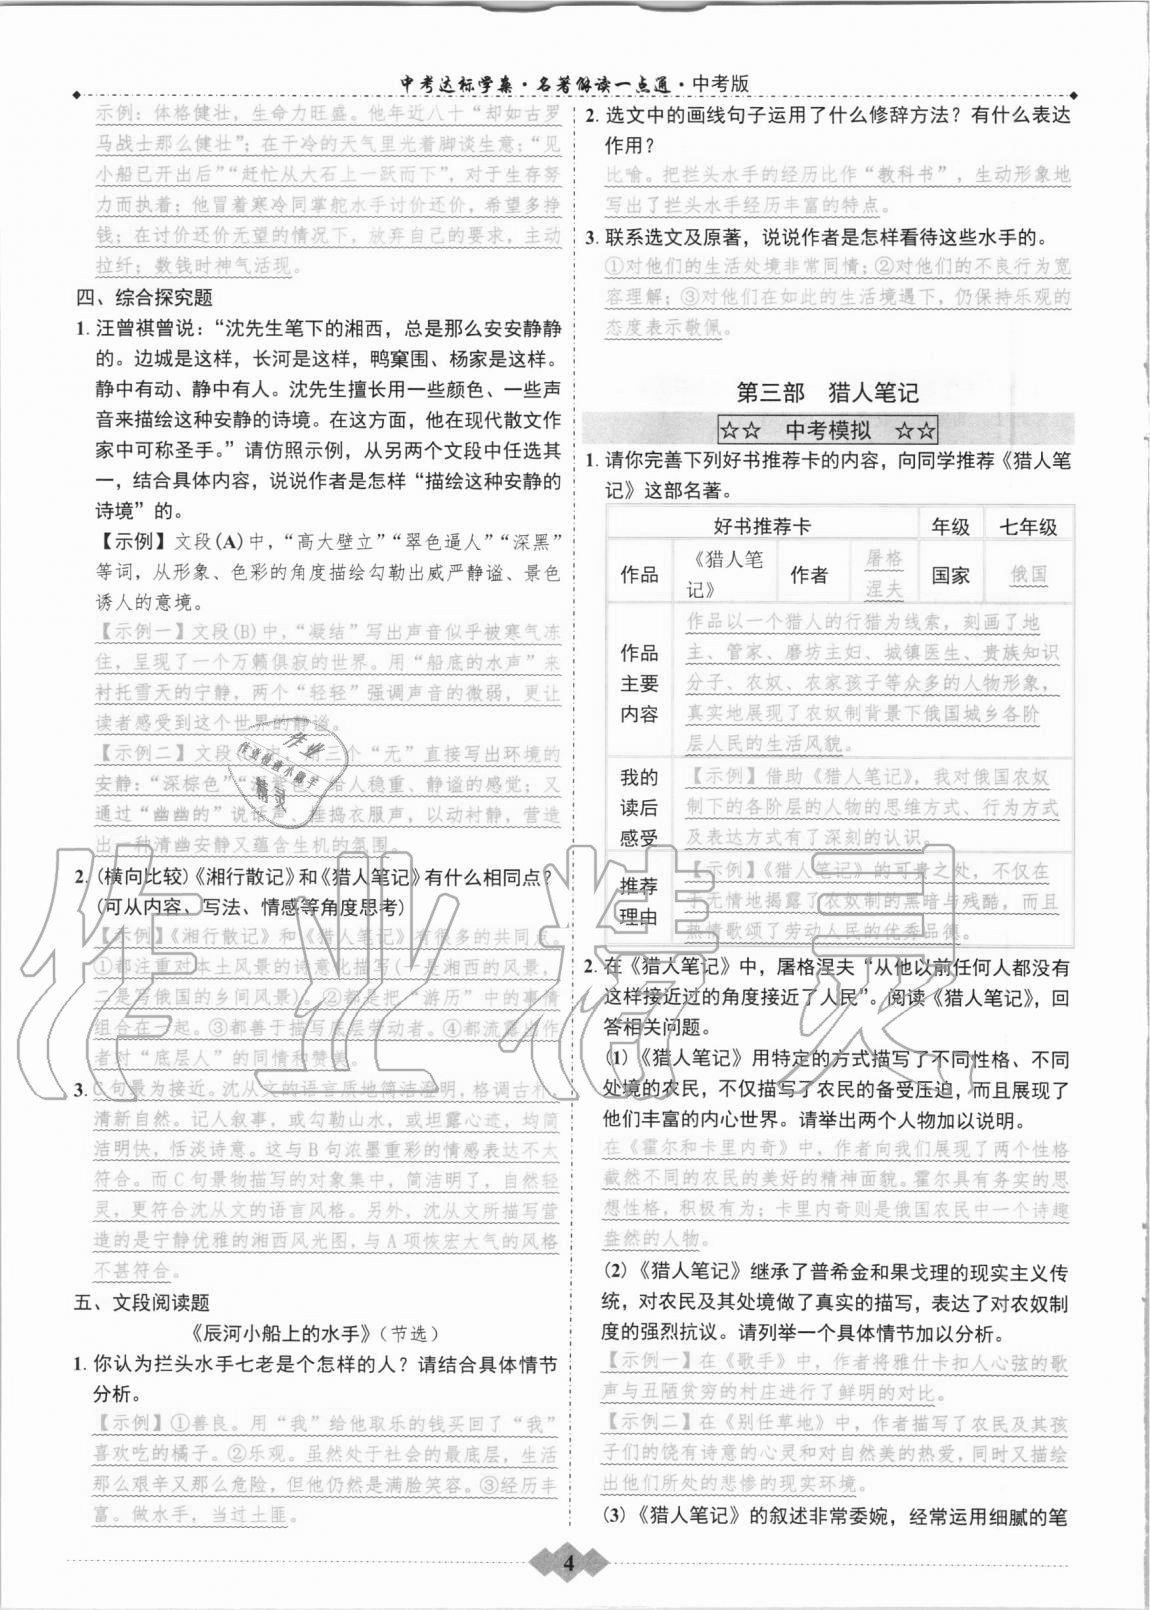 中考达标学案·名著解读一点通·中考版
示例：体格健壮，生命力旺盛。他年近八十“却如古罗
马战士那么健壮”；在干冷的天气里光着脚谈生意；“见
小船已开出后”“赶忙从大石上一跃而下”，对于生存努
力而执着；他冒着寒冷同掌舵水手讨价还价，希望多挣
钱；在讨价还价无望的情况下，放弃自己的要求，主动
拉纤；数钱时神气活现。
四、综合探究题
1. 汪曾祺曾说：“沈先生笔下的湘西，总是那么安安静静
的。边城是这样，长河是这样，鸭窠围、杨家是这样。
静中有动、静中有人。沈先生擅长用一些颜色、一些声
音来描绘这种安静的诗境。在这方面，他在现代散文作
家中可称圣手。”请仿照示例，从另两个文段中任选其
一，结合具体内容，说说作者是怎样“描绘这种安静的
诗境”的。
【示例】文段(A)中，“高大壁立”“翠色逼人”“深黑”
等词，从形象、色彩的角度描绘勾勒出威严静谧、景色
诱人的意境。
【示例一】文段(B)中，“凝结”写出声音似乎被寒气冻
住，呈现了一个万籁俱寂的世界。用“船底的水声”来
衬托雪天的宁静，两个“轻轻”强调声音的微弱，更让
读者感受到这个世界的静谧。
【示例二】文段 中， 三个“无”直接写出环境的
安静；“深棕色”“ 紫色”给人稳重、静谧的感觉；又
通过“幽幽的”说话声、捶捣衣服声，以动衬静，营造
出一种清幽安静又蕴含生机的氛围。
2. (横向比较)《湘行散记》和《猎人笔记》有什么相同点？
(可从内容、写法、情感等角度思考)
【示例】《湘行散记》和《猎人笔记》有很多的共同点。
①都注重对本土风景的诗意化描写(一是湘西的风景，
二是写俄国的乡间风景)。②都是把“游历”中的事情
组合在一起。③都善于描写底层劳动者。④都流露出作
者对“底层人”的同情和赞美。
3. C句最为接近。沈从文的语言质地简洁澄明，格调古朴
清新自然。记人叙事，或勾勒山水，或坦露心迹，均简
洁明快，恬淡诗意。这与B句浓墨重彩的情感表达不太
符合。而C句景物描写的对象集中，简洁明了，自然轻
灵，更符合沈从文的语言风格。另外，沈从文所描写营
造的是宁静优雅的湘西风光图，与A项恢宏大气的风格
不甚符合。
五、文段阅读题
《辰河小船上的水手》(节选)
1. 你认为拦头水手七老是个怎样的人？请结合具体情节
分析。
【示例】①善良。用“我”给他取乐的钱买回了“我”
喜欢吃的橘子。②乐观。虽然处于社会的最底层，生活
那么艰辛又那么危险，但他仍然是满脸笑容。③经历丰
富。做水手，当过土匪。
2. 选文中的画线句子运用了什么修辞方法？有什么表达
作用？
比喻。把拦头水手的经历比作“教科书”，生动形象地
写出了拦头水手经历丰富的特点。
3. 联系选文及原著，说说作者是怎样看待这些水手的。
①对他们的生活处境非常同情；②对他们的不良行为宽
容理解；③对他们在如此的生活境遇下，仍保持乐观的
态度表示敬佩。
第三部 猎人笔记
☆☆ 中考模拟 ☆☆
1. 请你完善下列好书推荐卡的内容，向同学推荐《猎人笔
记》这部名著。
好书推荐卡 年级 七年级
作品 《猎人笔记》 作者 屠格涅夫 国家 俄国
作品主要内容
作品以一个猎人的行猎为线索，刻画了地
主、管家、磨坊主妇、城镇医生、贵族知识
分子、农奴、农家孩子等众多的人物形象，
真实地展现了农奴制背景下俄国城乡各阶
层人民的生活风貌。
我的读后感受
【示例】借助《猎人笔记》，我对俄国农奴
制下的各阶层的人物的思维方式、行为方式
及表达方式有了深刻的认识。
推荐理由
【示例】《猎人笔记》的可贵之处，不仅在
于无情地揭露了农奴制的黑暗与残酷，而且
热情歌颂了劳动人民的优秀品德。
2. 在《猎人笔记》中，屠格涅夫“从他以前任何人都没有
这样接近过的角度接近了人民”。阅读《猎人笔记》，回
答相关问题。
(1)《猎人笔记》用特定的方式描写了不同性格、不同
处境的农民，不仅描写了农民的备受压迫，而且展现了
他们丰富的内心世界。请举出两个人物加以说明。
在《霍尔和卡里内奇》中，作者向我们展现了两个性格
截然不同的农民的美好的精神面貌。霍尔具有务实的思
想性格，积极有为；卡里内奇则是俄国农民中一个诗趣
盎然的人物。
(2)《猎人笔记》继承了普希金和果戈理的现实主义传
统，对农民及其处境做了真实的描写，表达了对农奴制
度的强烈抗议。请列举一个具体情节加以分析。
【示例一】在《歌手》中，作者将雅什卡扣人心弦的歌
声与丑陋贫穷的村庄进行了鲜明的对比。
【示例二】在《别任草地》中，作者描写了农民及其孩
子们的饶有诗意的心灵和对自然美的热爱，同时又描绘
出他们所处的悲惨的现实环境。
(3)《猎人笔记》的叙述非常委婉，经常运用细腻的笔
4
作业精灵
作业
作业检查小帮手
精灵